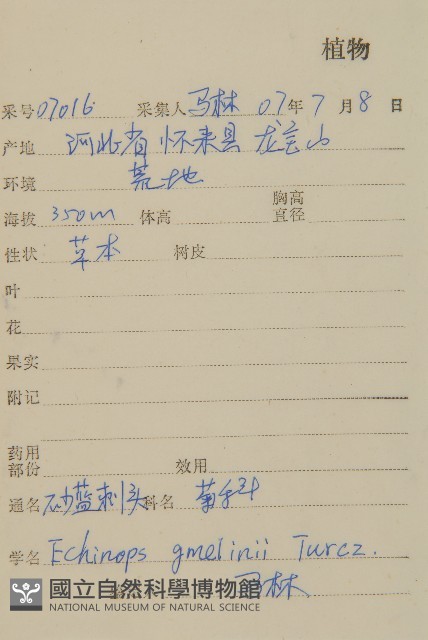 植物
采号 07016 采集人 马林 07年 7月 8日
产地 河北省 怀来县 龙宝山
环境 荒地
海拔 350m 体高 胸高直径
性状 草本 树皮
叶
花
果实
附记
药用部份 效用
通名 砂蓝刺头 科名 菊科
学名 Echinops gmelinii Turcz.
马林
國立自然科學博物館
NATIONAL MUSEUM OF NATURAL SCIENCE